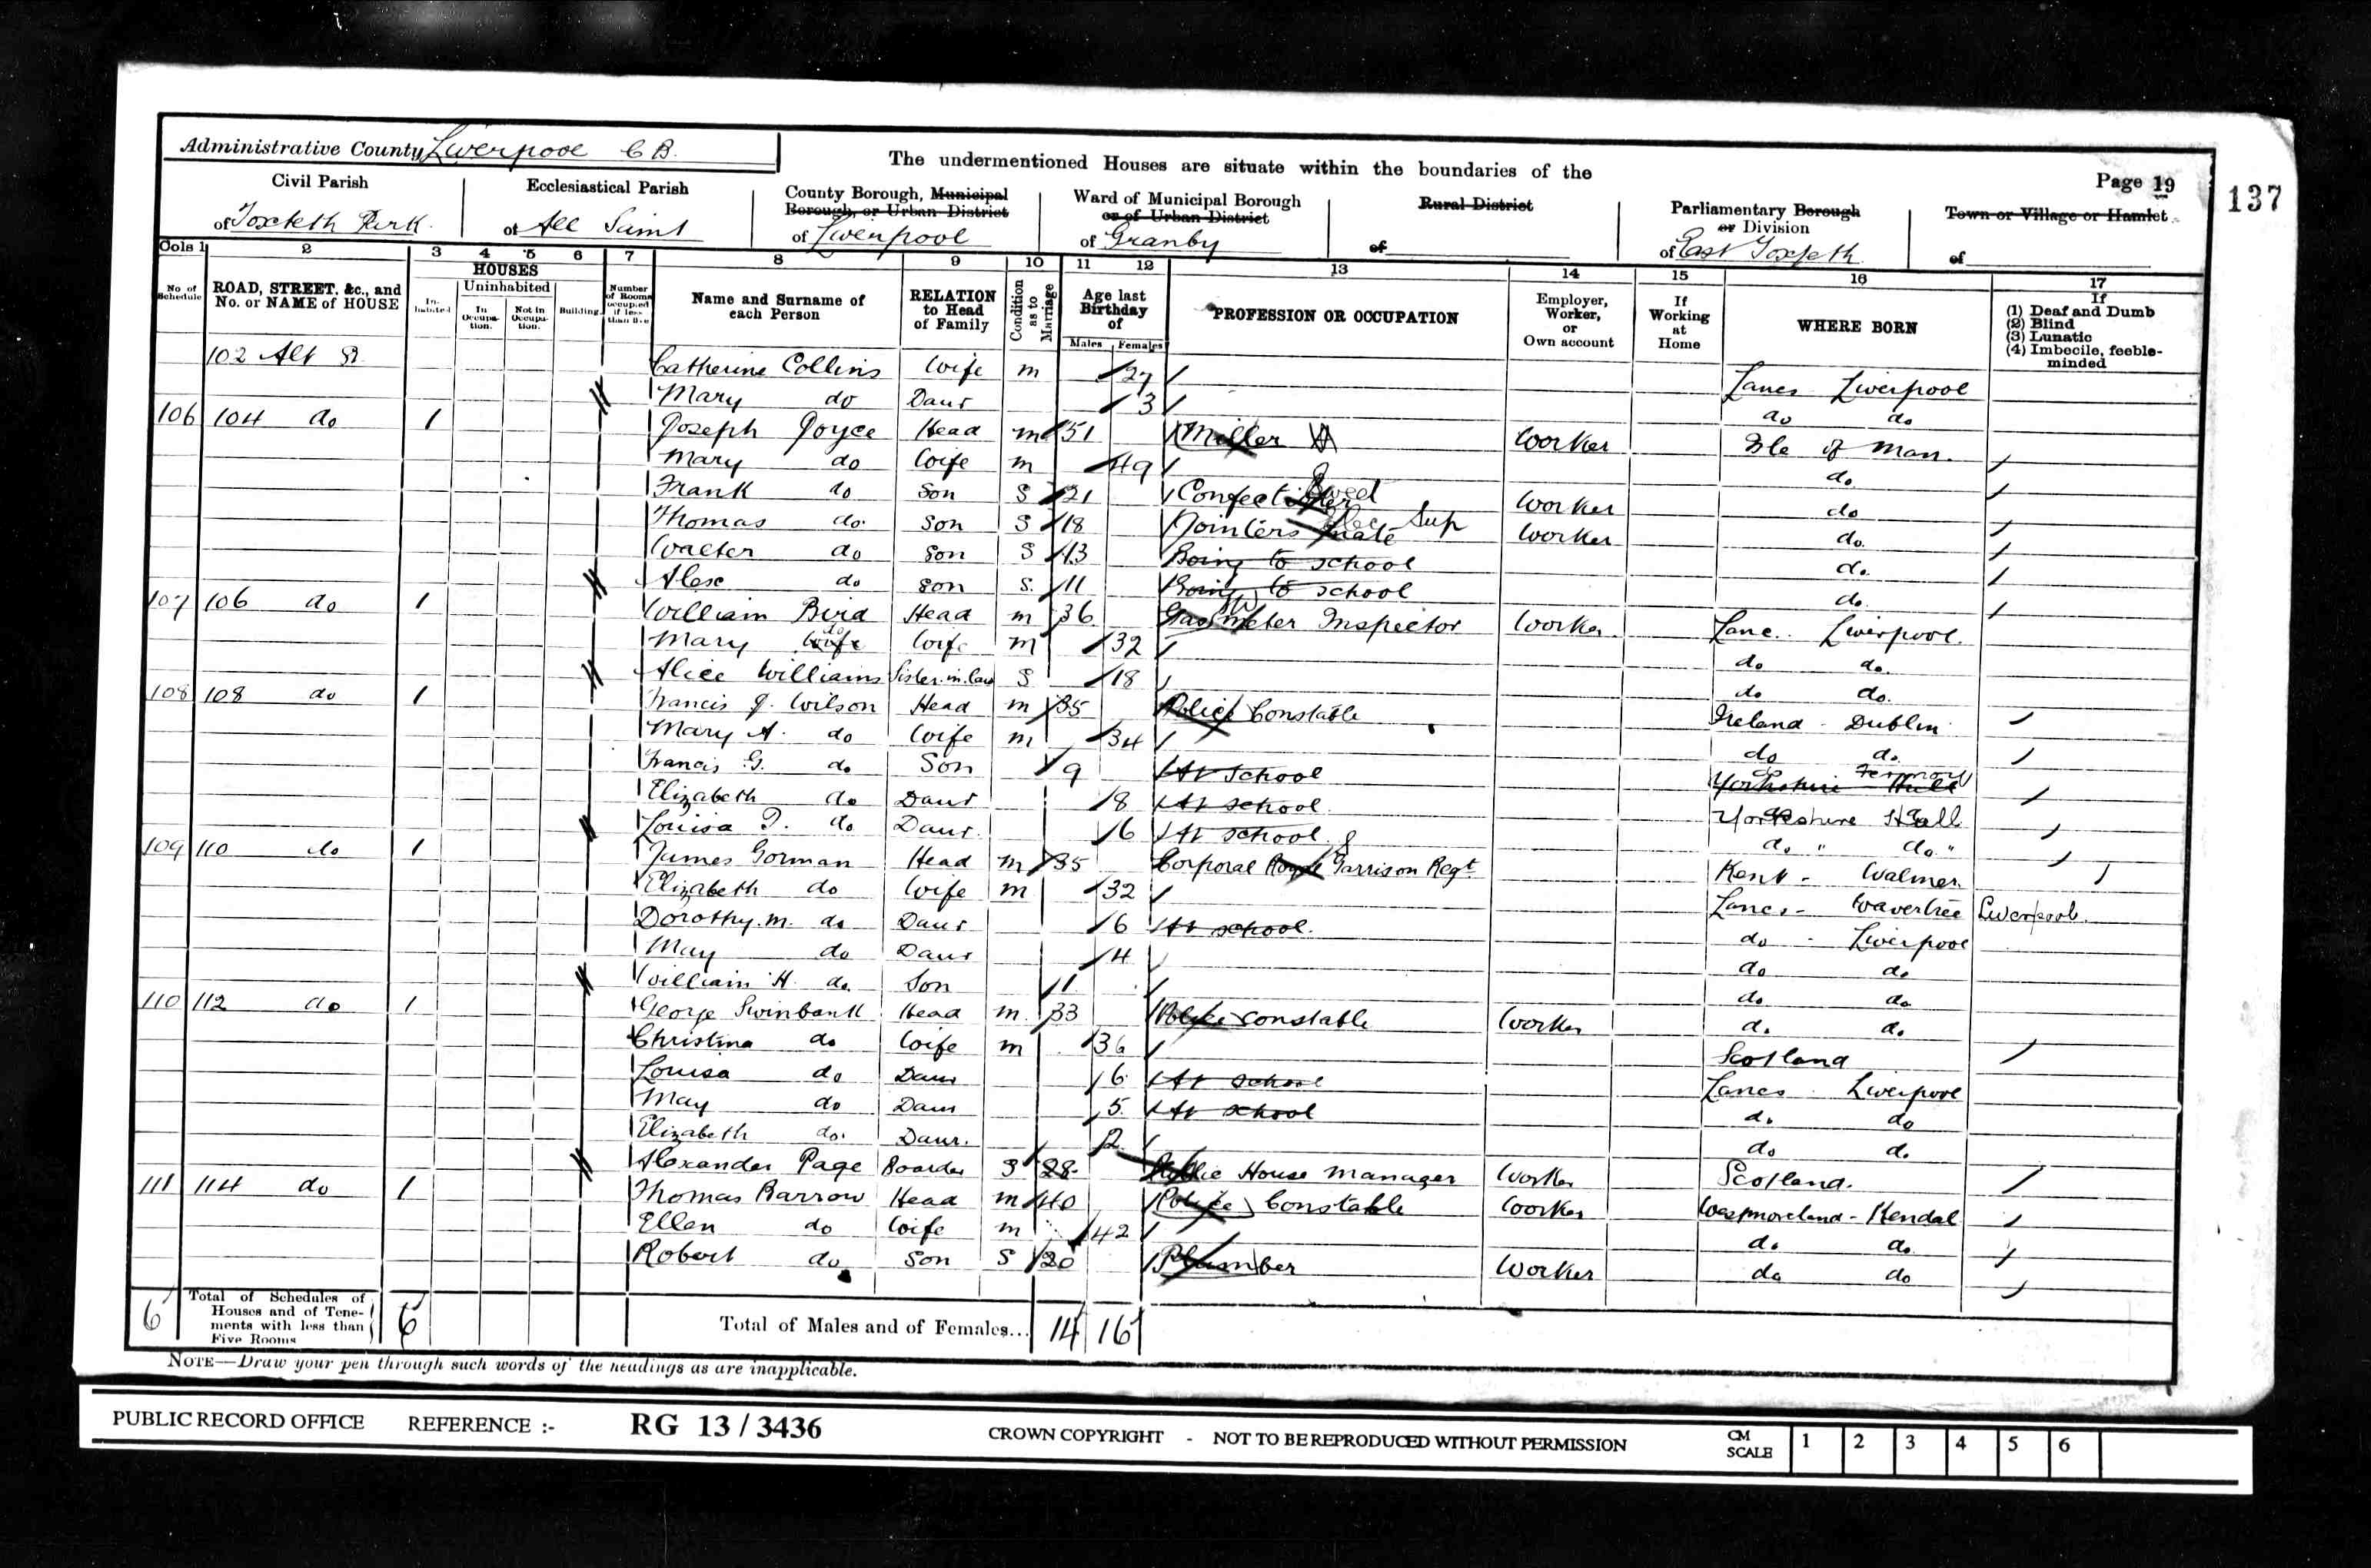 Administrative County Liverpool C B.
The undermentioned Houses are situate within the boundaries of the
Page 19
137
Civil Parish of Toxteth Park.
Ecclesiastical Parish of All Saint
County Borough, Municipal Borough, or Urban District of Liverpool
Ward of Municipal Borough or of Urban District of Granby
Rural District of
Parliamentary Borough or Division of East Toxteth
Town or Village or Hamlet of
Cols 1 2 3 4 5 6 7 8 9 10 11 12 13 14 15 16 17
No. of Schedule
ROAD, STREET, &c., and No. or NAME of HOUSE
HOUSES
Inhabited
Uninhabited
In Occupation.
Not in Occupation.
Building.
Number of Rooms occupied if less than five
Name and Surname of each Person
RELATION to Head of Family
Condition as to Marriage
Age last Birthday of
Males Females
PROFESSION OR OCCUPATION
Employer, Worker, or Own account
If Working at Home
WHERE BORN
If
(1) Deaf and Dumb
(2) Blind
(3) Lunatic
(4) Imbecile, feeble-minded
102 Alt St Catherine Collins Wife m 27 Lancs Liverpool
Mary do Daur 3 do do
106 104 do 1 Joseph Joyce Head m 51 Miller Worker Isle of Man.
Mary do Wife m 49 do
Frank do Son S 21 Confectioner Sweet Worker do
Thomas do. Son S 18 Jointers Mate Elec Sup Worker do.
Walter do Son S 13 Going to school do.
Alex do Son S. 11 Going to school do.
107 106 do 1 William Bird Head m 36 Gas Meter Inspector Worker Lanc. Liverpool.
Mary Wife do Wife m 32 do do.
Alice Williams Sister.in.law S 18 do do.
108 108 do 1 Francis J. Wilson Head m 35 Police Constable Ireland - Dublin
Mary A. do Wife m 34 do do.
Francis G. do Son 9 At School Yorkshire Hull do Fermoy
Elizabeth do Daur 8 At school. Yorkshire Hull
Louisa J. do Daur. 6 At school. do. " do. "
109 110 do 1 James Gorman Head m 35 Corporal Royal Garrison Regt. Kent - Walmer
Elizabeth do Wife m 32 Lancs - Wavertree Liverpool.
Dorothy.M. do Daur 6 At school. do - Liverpool
May do Daur 4 do do
William H. do. Son 1 do do
110 112 do 1 George Swinbank Head m. 33 Police constable Worker do do
Christina do Wife m 36 Scotland
Louisa do Daur 6 At school Lancs Liverpool
May do Daur 5. At school do do
Elizabeth do. Daur. 2 do do.
Alexander Page Boarder S 28 Public House Manager Worker Scotland.
111 114 do 1 Thomas Barrow Head m 40 Police Constable Worker Westmoreland - Kendal
Ellen do Wife m 42 do do
Robert do Son S 20 Plumber Worker do do
6 Total of Schedules of Houses and of Tenements with less than Five Rooms 6 Total of Males and of Females... 14 16
NOTE—Draw your pen through such words of the headings as are inapplicable.
PUBLIC RECORD OFFICE REFERENCE :- RG 13 / 3436 CROWN COPYRIGHT - NOT TO BE REPRODUCED WITHOUT PERMISSION CM SCALE 1 2 3 4 5 6